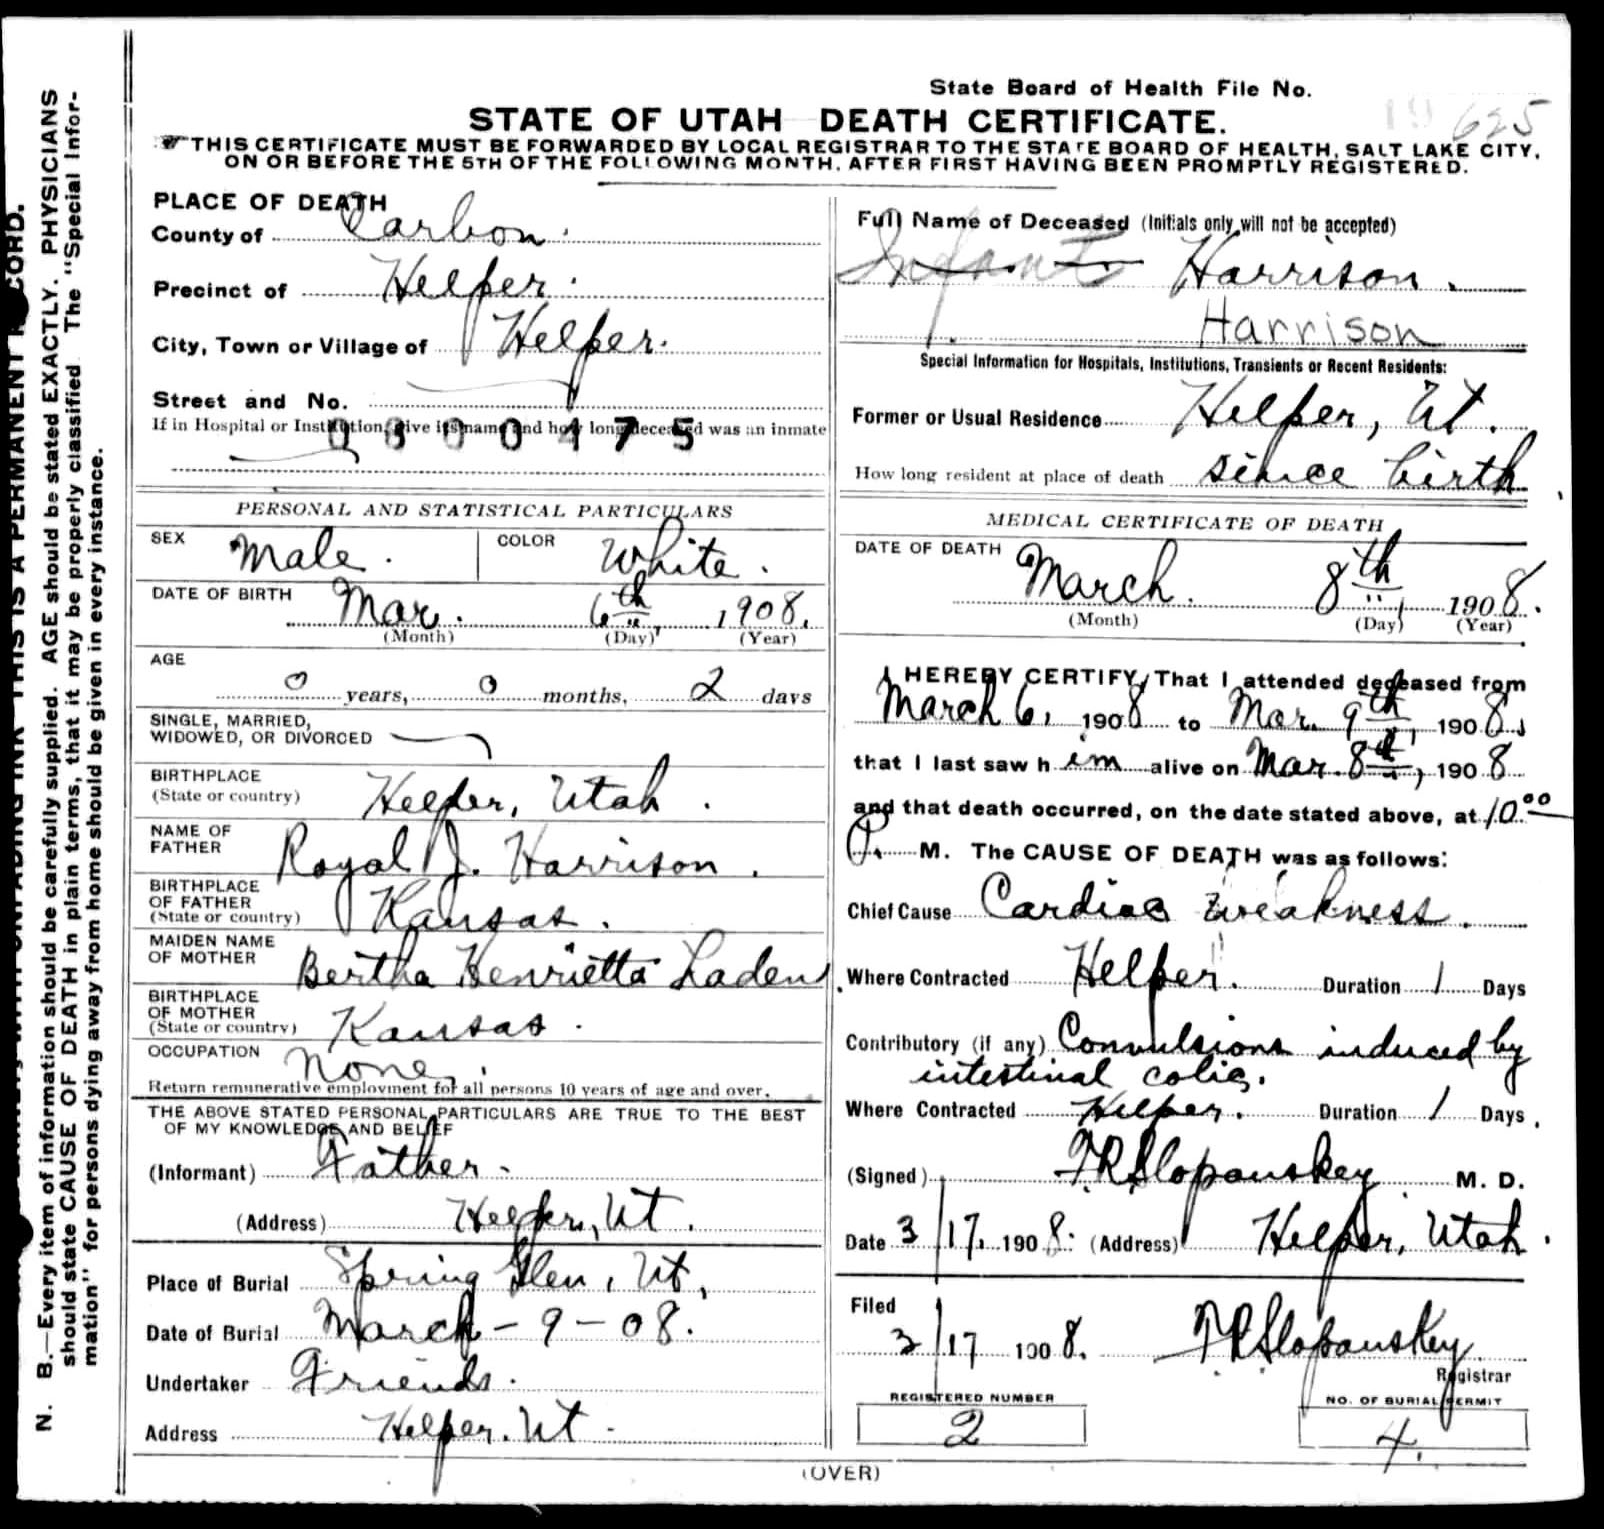 State Board of Health File No.
625
STATE OF UTAH DEATH CERTIFICATE.
THIS CERTIFICATE MUST BE FORWARDED BY LOCAL REGISTRAR TO THE STATE BOARD OF HEALTH, SALT LAKE CITY,
ON OR BEFORE THE 5TH OF THE FOLLOWING MONTH, AFTER FIRST HAVING BEEN PROMPTLY REGISTERED.
PLACE OF DEATH
County of Carbon.
Precinct of Helper.
City, Town or Village of Helper.
Street and No.
If in Hospital or Institution, give its name and how long deceased was an inmate
PERSONAL AND STATISTICAL PARTICULARS
SEX Male. COLOR White.
DATE OF BIRTH Mar. 6th, 1908.
(Month) (Day) (Year)
AGE
0 years, 0 months, 2 days
SINGLE, MARRIED,
WIDOWED, OR DIVORCED
BIRTHPLACE
(State or country) Helper, Utah.
NAME OF
FATHER Royal J. Harrison.
BIRTHPLACE
OF FATHER
(State or country) Kansas.
MAIDEN NAME
OF MOTHER Bertha Henrietta Laden
BIRTHPLACE
OF MOTHER
(State or country) Kansas.
OCCUPATION None.
Return remunerative employment for all persons 10 years of age and over.
THE ABOVE STATED PERSONAL PARTICULARS ARE TRUE TO THE BEST
OF MY KNOWLEDGE AND BELIEF
(Informant) Father.
(Address) Helper, Ut.
Place of Burial Spring Glen, Ut.
Date of Burial March - 9 - 08.
Undertaker Friends.
Address Helper. Ut.
Full Name of Deceased (Initials only will not be accepted)
Infant Harrison.
Harrison
Special Information for Hospitals, Institutions, Transients or Recent Residents:
Former or Usual Residence Helper, Ut.
How long resident at place of death since birth
MEDICAL CERTIFICATE OF DEATH
DATE OF DEATH March. 8th, 1908.
(Month) (Day) (Year)
I HEREBY CERTIFY, That I attended deceased from
March 6, 1908 to Mar. 9th, 1908.,
that I last saw him alive on Mar. 8th, 1908
and that death occurred, on the date stated above, at 10.00
P. M. The CAUSE OF DEATH was as follows:
Chief Cause Cardiac Weakness.
Where Contracted Helper. Duration 1 Days
Contributory (if any) Convulsions induced by
intestinal colic.
Where Contracted Helper. Duration 1 Days.
(Signed) F.R. Slopanskey M. D.
Date 3/17. 1908. (Address) Helper, Utah.
Filed
3/17 1908. F.R. Slopanskey
Registrar
REGISTERED NUMBER
2
NO. OF BURIAL PERMIT
4.
(OVER)
N. B.—Every item of information should be carefully supplied. AGE should be stated EXACTLY. PHYSICIANS
should state CAUSE OF DEATH in plain terms, that it may be properly classified. The "Special Infor-
mation" for persons dying away from home should be given in every instance.